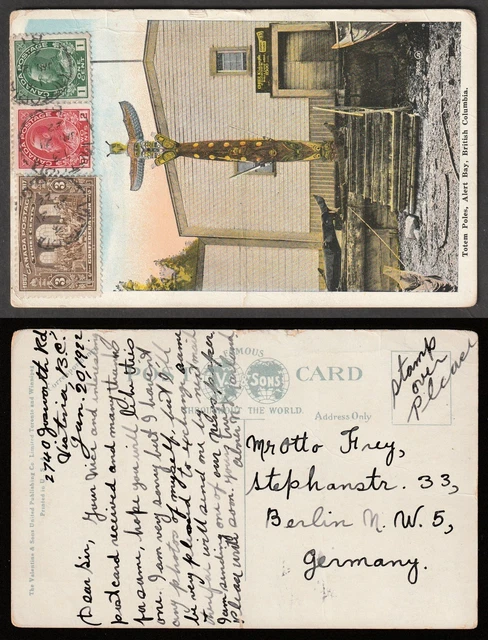 CANADA POSTAGE
1 1
CANADA POSTAGE
2 2
CANADA POSTAGE
3 3
Totem Poles, Alert Bay, British Columbia.
FAMOUS
V. & SONS CARD
THROUGHOUT THE WORLD.
Address Only
Stamp
over
Please
The Valentine & Sons United Publishing Co. Limited Toronto and Winnipeg
Printed in
2740 Rd
Victoria B.C.
Jan. 20, 1922
Dear Sir, Your nice and interesting
postcard received and many thanks
for same, hope you will like this
one. I am very sorry but I haven't
any photos of myself, but will
be very pleased to exchange same
if you will send me by next mail
I am sending one of our newspaper
Please write soon. Yours
Mr Otto Frey,
Stephanstr. 33,
Berlin N. W. 5,
Germany.